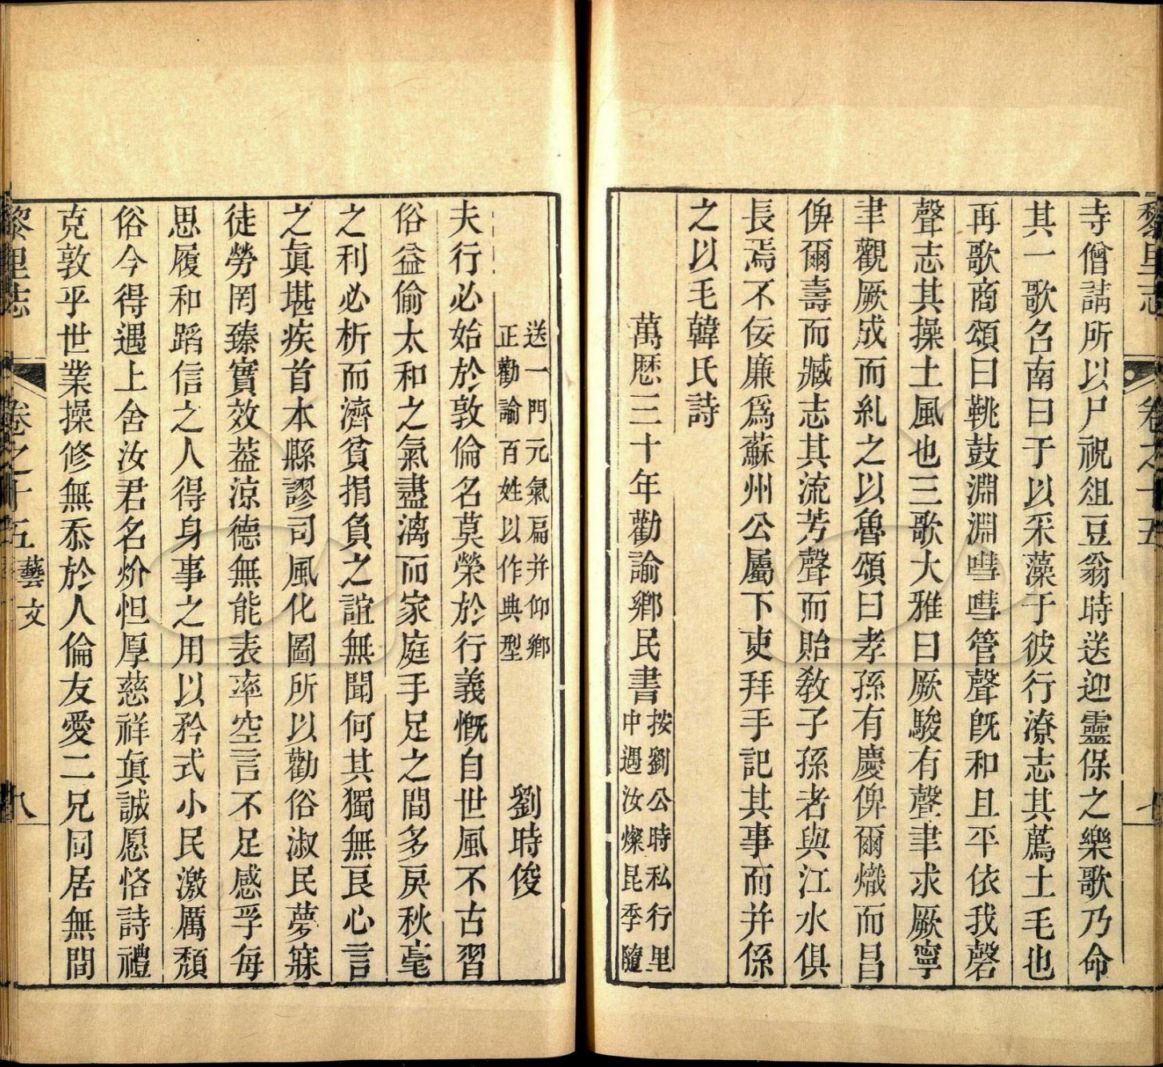 黎里志
卷之十五
七
寺僧請所以尸祝俎豆翁時送迎靈保之樂歌乃命
其一歌召南曰于以采藻于彼行潦志其薦土毛也
再歌商頌曰鞉鼓淵淵嘒嘒管聲旣和且平依我磬
聲志其操土風也三歌大雅曰厥駿有聲聿求厥寧
聿觀厥成而糺之以魯頌曰孝孫有慶俾爾熾而昌
俾爾壽而臧志其流芳聲而貽敎子孫者與江水俱
長焉不佞廉爲蘇州公屬下吏拜手記其事而并係
之以毛韓氏詩
萬歷三十年勸諭鄕民書
按劉公時私行里
中遇汝燦昆季隨
送一門元氣扁并仰鄕
正勸諭百姓以作典型
劉時俊
夫行必始於敦倫名莫榮於行義慨自世風不古習
俗益偷太和之氣盡漓而家庭手足之間多戾秋毫
之利必析而濟貧捐負之誼無聞何其獨無良心言
之眞堪疾首本縣謬司風化圖所以勸俗淑民夢寐
徒勞罔臻實效葢涼德無能表率空言不足感孚每
思履和蹈信之人得身事之用以矜式小民激厲頹
俗今得遇上舍汝君名炌怛厚慈祥眞誠愿恪詩禮
克敦乎世業操修無忝於人倫友愛二兄同居無間
黎里志
卷之十五
藝文
八